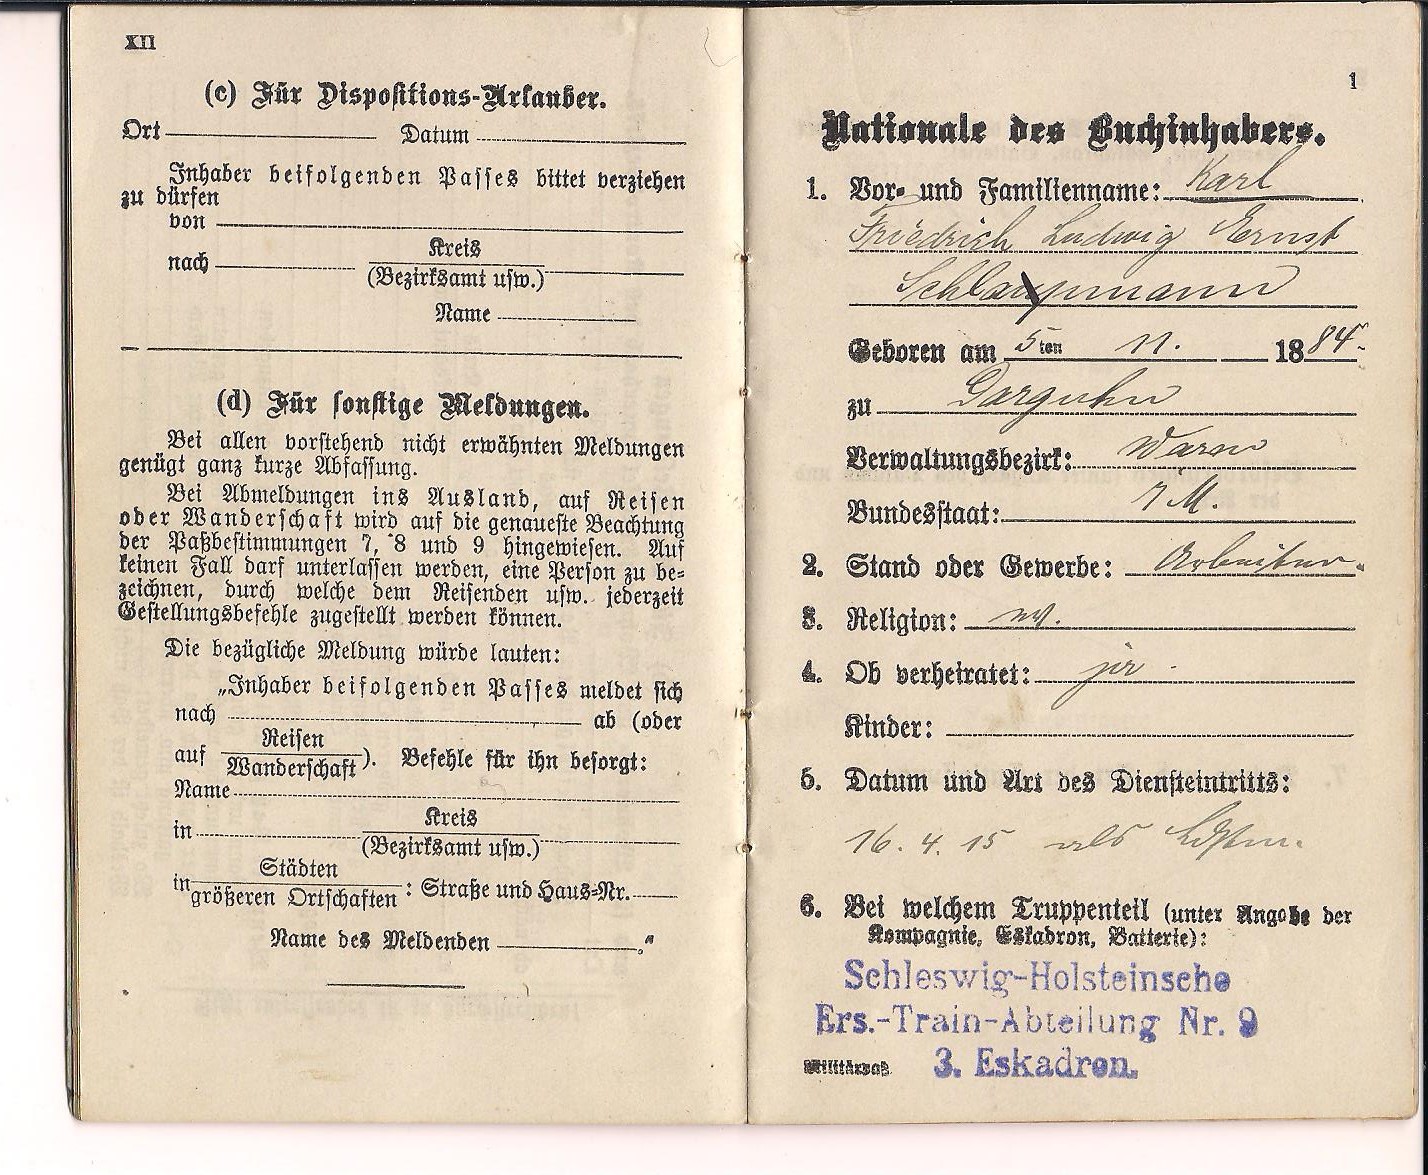 XII
(c) Für Dispositions-Urlauber.
Ort Datum
Inhaber beifolgenden Passes bittet verziehen
zu dürfen
von
nach Kreis
(Bezirksamt usw.)
Name
(d) Für sonstige Meldungen.
Bei allen vorstehend nicht erwähnten Meldungen
genügt ganz kurze Abfassung.
Bei Abmeldungen ins Ausland, auf Reisen
oder Wanderschaft wird auf die genaueste Beachtung
der Paßbestimmungen 7, 8 und 9 hingewiesen. Auf
keinen Fall darf unterlassen werden, eine Person zu be-
zeichnen, durch welche dem Reisenden usw. jederzeit
Gestellungsbefehle zugestellt werden können.
Die bezügliche Meldung würde lauten:
„Inhaber beifolgenden Passes meldet sich
nach ab (oder
auf Reisen
Wanderschaft). Befehle für ihn besorgt:
Name
in Kreis
(Bezirksamt usw.)
in Städten
größeren Ortschaften: Straße und Haus-Nr.
Name des Meldenden ."
1
Nationale des Buchinhabers.
1. Vor- und Familienname: Karl
Friedrich Ludwig Ernst
Geboren am 5ten 11. 1884.
zu Darguhn
Verwaltungsbezirk: Waren
Bundesstaat: M.
2. Stand oder Gewerbe: Arbeiter.
3. Religion: ev.
4. Ob verheiratet: ja
Kinder:
5. Datum und Art des Diensteintritts:
16. 4. 15 als
6. Bei welchem Truppenteil (unter Angabe der
Kompagnie, Eskadron, Batterie):
Schleswig-Holsteinsche
Ers.-Train-Abteilung Nr. 9
Militärpaß. 3. Eskadron.